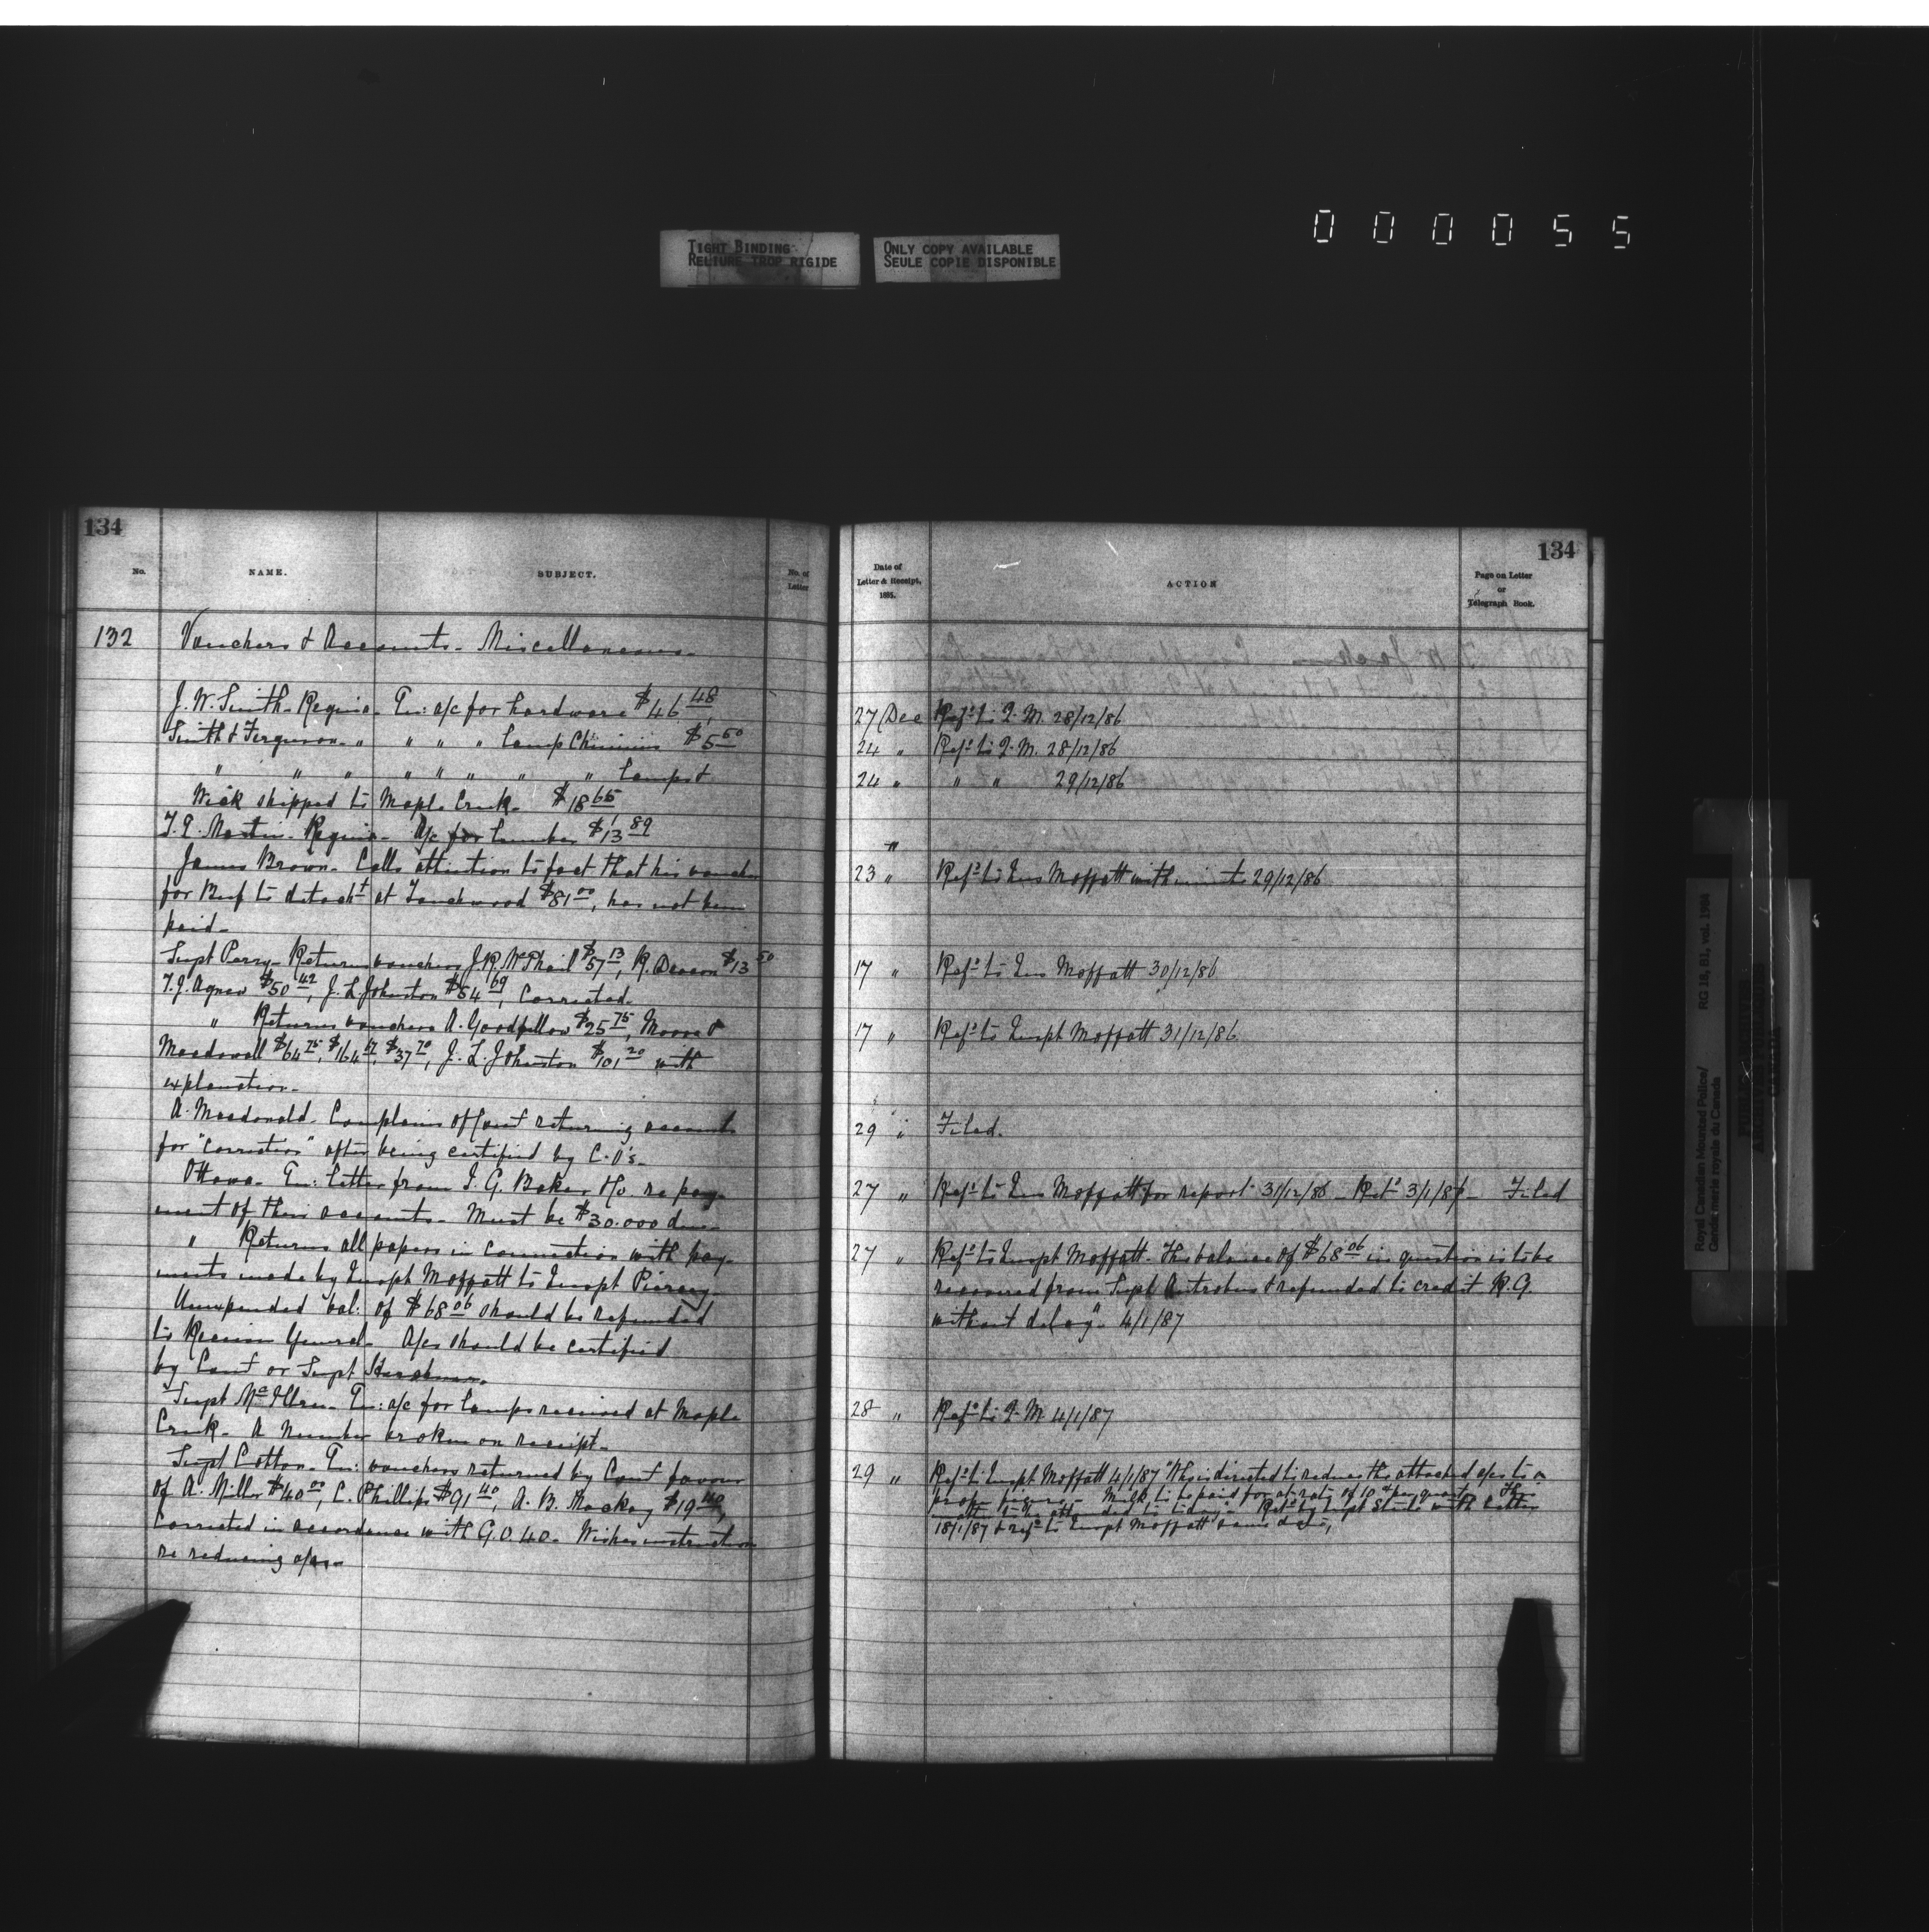 000055
TIGHT BINDING
RELIURE TROP RIGIDE
ONLY COPY AVAILABLE
SEULE COPIE DISPONIBLE
134
No.
NAME.
SUBJECT.
No. of
Letter
132
Vouchers & Accounts - Miscellaneous -
J. W. Smith - Regina - En: a/c for hardware $46.48
Smith & Ferguson - " " " " Lamp Chimnies $5.50
" " " " " " " " Lamps &
Wick shipped to Maple Creek - $18.65
Martin - Regina - A/c for Lumber $13.89
James Brown - Calls attention to fact that his vouch
for Beef to detach't at Touchwood $81.00, has not been
paid -
Supt Perry - Returns vouchers J.R. McPhail $57.13, R. Deacon $13.50
T.J. Agnew $50.42, J. L. Johnston $54.69, Corrected -
" Returns vouchers A. Goodfellow $25.75, Moore &
Macdowall $64.75, $164.67, $37.70, J. L. Johnston $101.20 with
explanation -
A. Macdonald - Complains of Com't returning accounts
for "correction" after being certified by C.O's. -
Ottawa - En: letter from I. G. Baker & Co. re pay-
ment of their accounts - Must be $30.000 due -
" Returns all papers in connection with pay-
ments made by Inspt Moffatt to Inspt Piercy -
Unexpended bal: of $68.06 should be refunded
to Receiver General - A/cs should be certified
by Com't or Supt
Supt McIllree - En: a/c for Lamps received at Maple
Creek - A Number broken on receipt -
Supt Cotton - En: vouchers returned by Com't favour
of A. Miller $40.00, C. Phillips $91.40, A. B. Mackay $19.40,
Corrected in accordance with G.O. 40 - Wishes instruction
re reducing a/cs -
134
Date of
Letter & Receipt,
1885.
ACTION
Page on Letter
or
Telegraph Book.
27 Dec Ref'd to Q. M. 28/12/86
24 " Ref'd to Q. M. 28/12/86
24 " " " 29/12/86
"
23 " Ref'd to Ins Moffatt with minute 29/12/86
17 " Ref'd to Ins Moffatt 30/12/86
17 " Ref'd to Inspt Moffatt 31/12/86
29 " Filed.
27 " Ref'd to Ins Moffatt for report 31/12/86 - Ret'd 3/1/87 - Filed
27 " Ref'd to Inspt Moffatt - This balance of $68.06 in question is to be
recovered from Supt Antrobus & refunded to credit R.G.
without delay". 4/1/87
28 " Ref'd to Q. M. 4/1/87
29 " Ref'd to Inspt Moffatt 4/1/87 "Who is directed to reduce the attached a/cs to a
proper figure - Milk to be paid for at rate of 10 cts per quart - The
matter to be attended to Ret'd by Inspt Steele with letter
18/1/87 & ref'd to Inspt Moffatt same date,
Royal Canadian Mounted Police/
Gendarmerie royale du Canada
RG 18, B1, vol. 1984
PUBLIC ARCHIVES